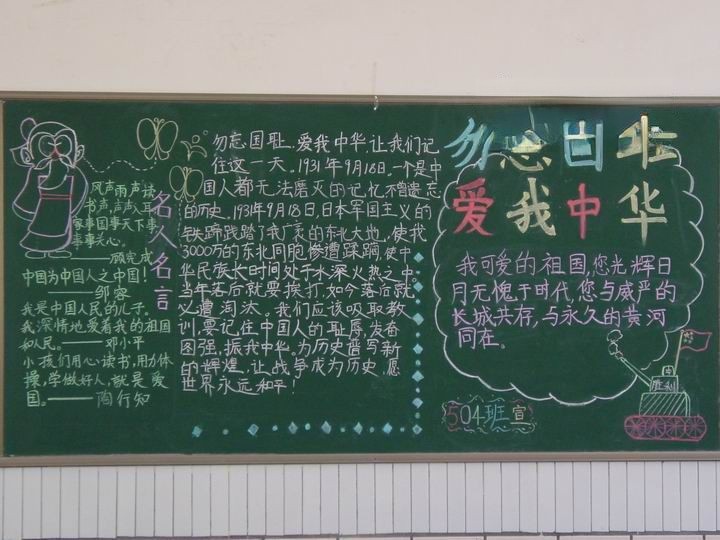 风声雨声读
书声声声入耳
家事国事天下事
事事关心。
——顾宪成
中国为中国人之中国!
——邹容
我是中国人民的儿子。
我深情地爱着我的祖国
和人民。——邓小平
小孩们用心读书,用力体
操,学做好人,就是爱
国。——陶行知
名人名言
勿忘国耻、爱我中华,让我们记
住这一天。1931年9月18日,一个是中
国人都无法磨灭的记忆,不曾遗忘
的历史。1931年9月18日,日本军国主义的
铁蹄践踏了我广袤的东北大地,使我
3000万的东北同胞惨遭蹂躏,使中
华民族长时间处于水深火热之中。
当年落后就要挨打,如今落后就
遭淘汰。我们应该吸取教
训,要记住中国人的耻辱,发奋
图强,振我中华。为历史谱写新
的辉煌,让战争成为历史,愿
世界永远和平!
勿忘国耻
爱我中华
我可爱的祖国,您光辉日
月无愧于时代,您与威严的
长城共存,与永久的黄河
同在。
504班宣
胜利